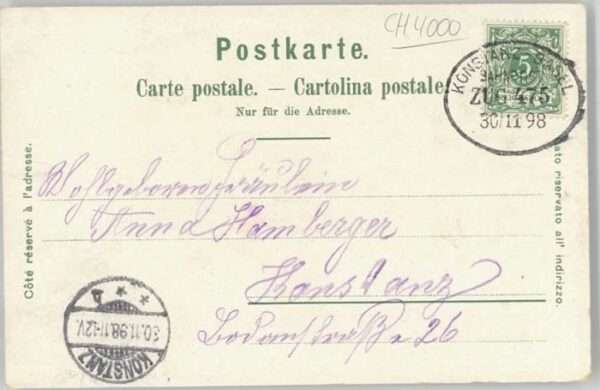 CH 4000
Postkarte.
Carte postale. — Cartolina postale.
Nur für die Adresse.
5
KONSTANZ BASEL
BAHNPOST
ZUG 475
30/11 98
Côté réservé à l'adresse.
Lato riservato all' indirizzo.
Wohlgeboren Fräulein
Anna Hamberger
Konstanz
Bodanstraße 26
30.11.98.11-12V.
KONSTANZ